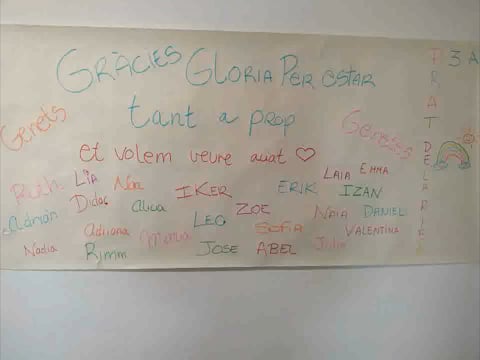 GRÀCIES GLORIA PER ESTAR
tant a prop
Genets
Genetes
et volem veure aviat ♡
Ruth Lia Noa IKER ERIK LAIA EMMA IZAN
Adrián Didac Alicia LEO ZOE NAIA DANIEL
Adriana Maria SOFIA Julia VALENTINA
Nadia Rimm JOSE ABEL
3 A
PRAT DE LA RIBA